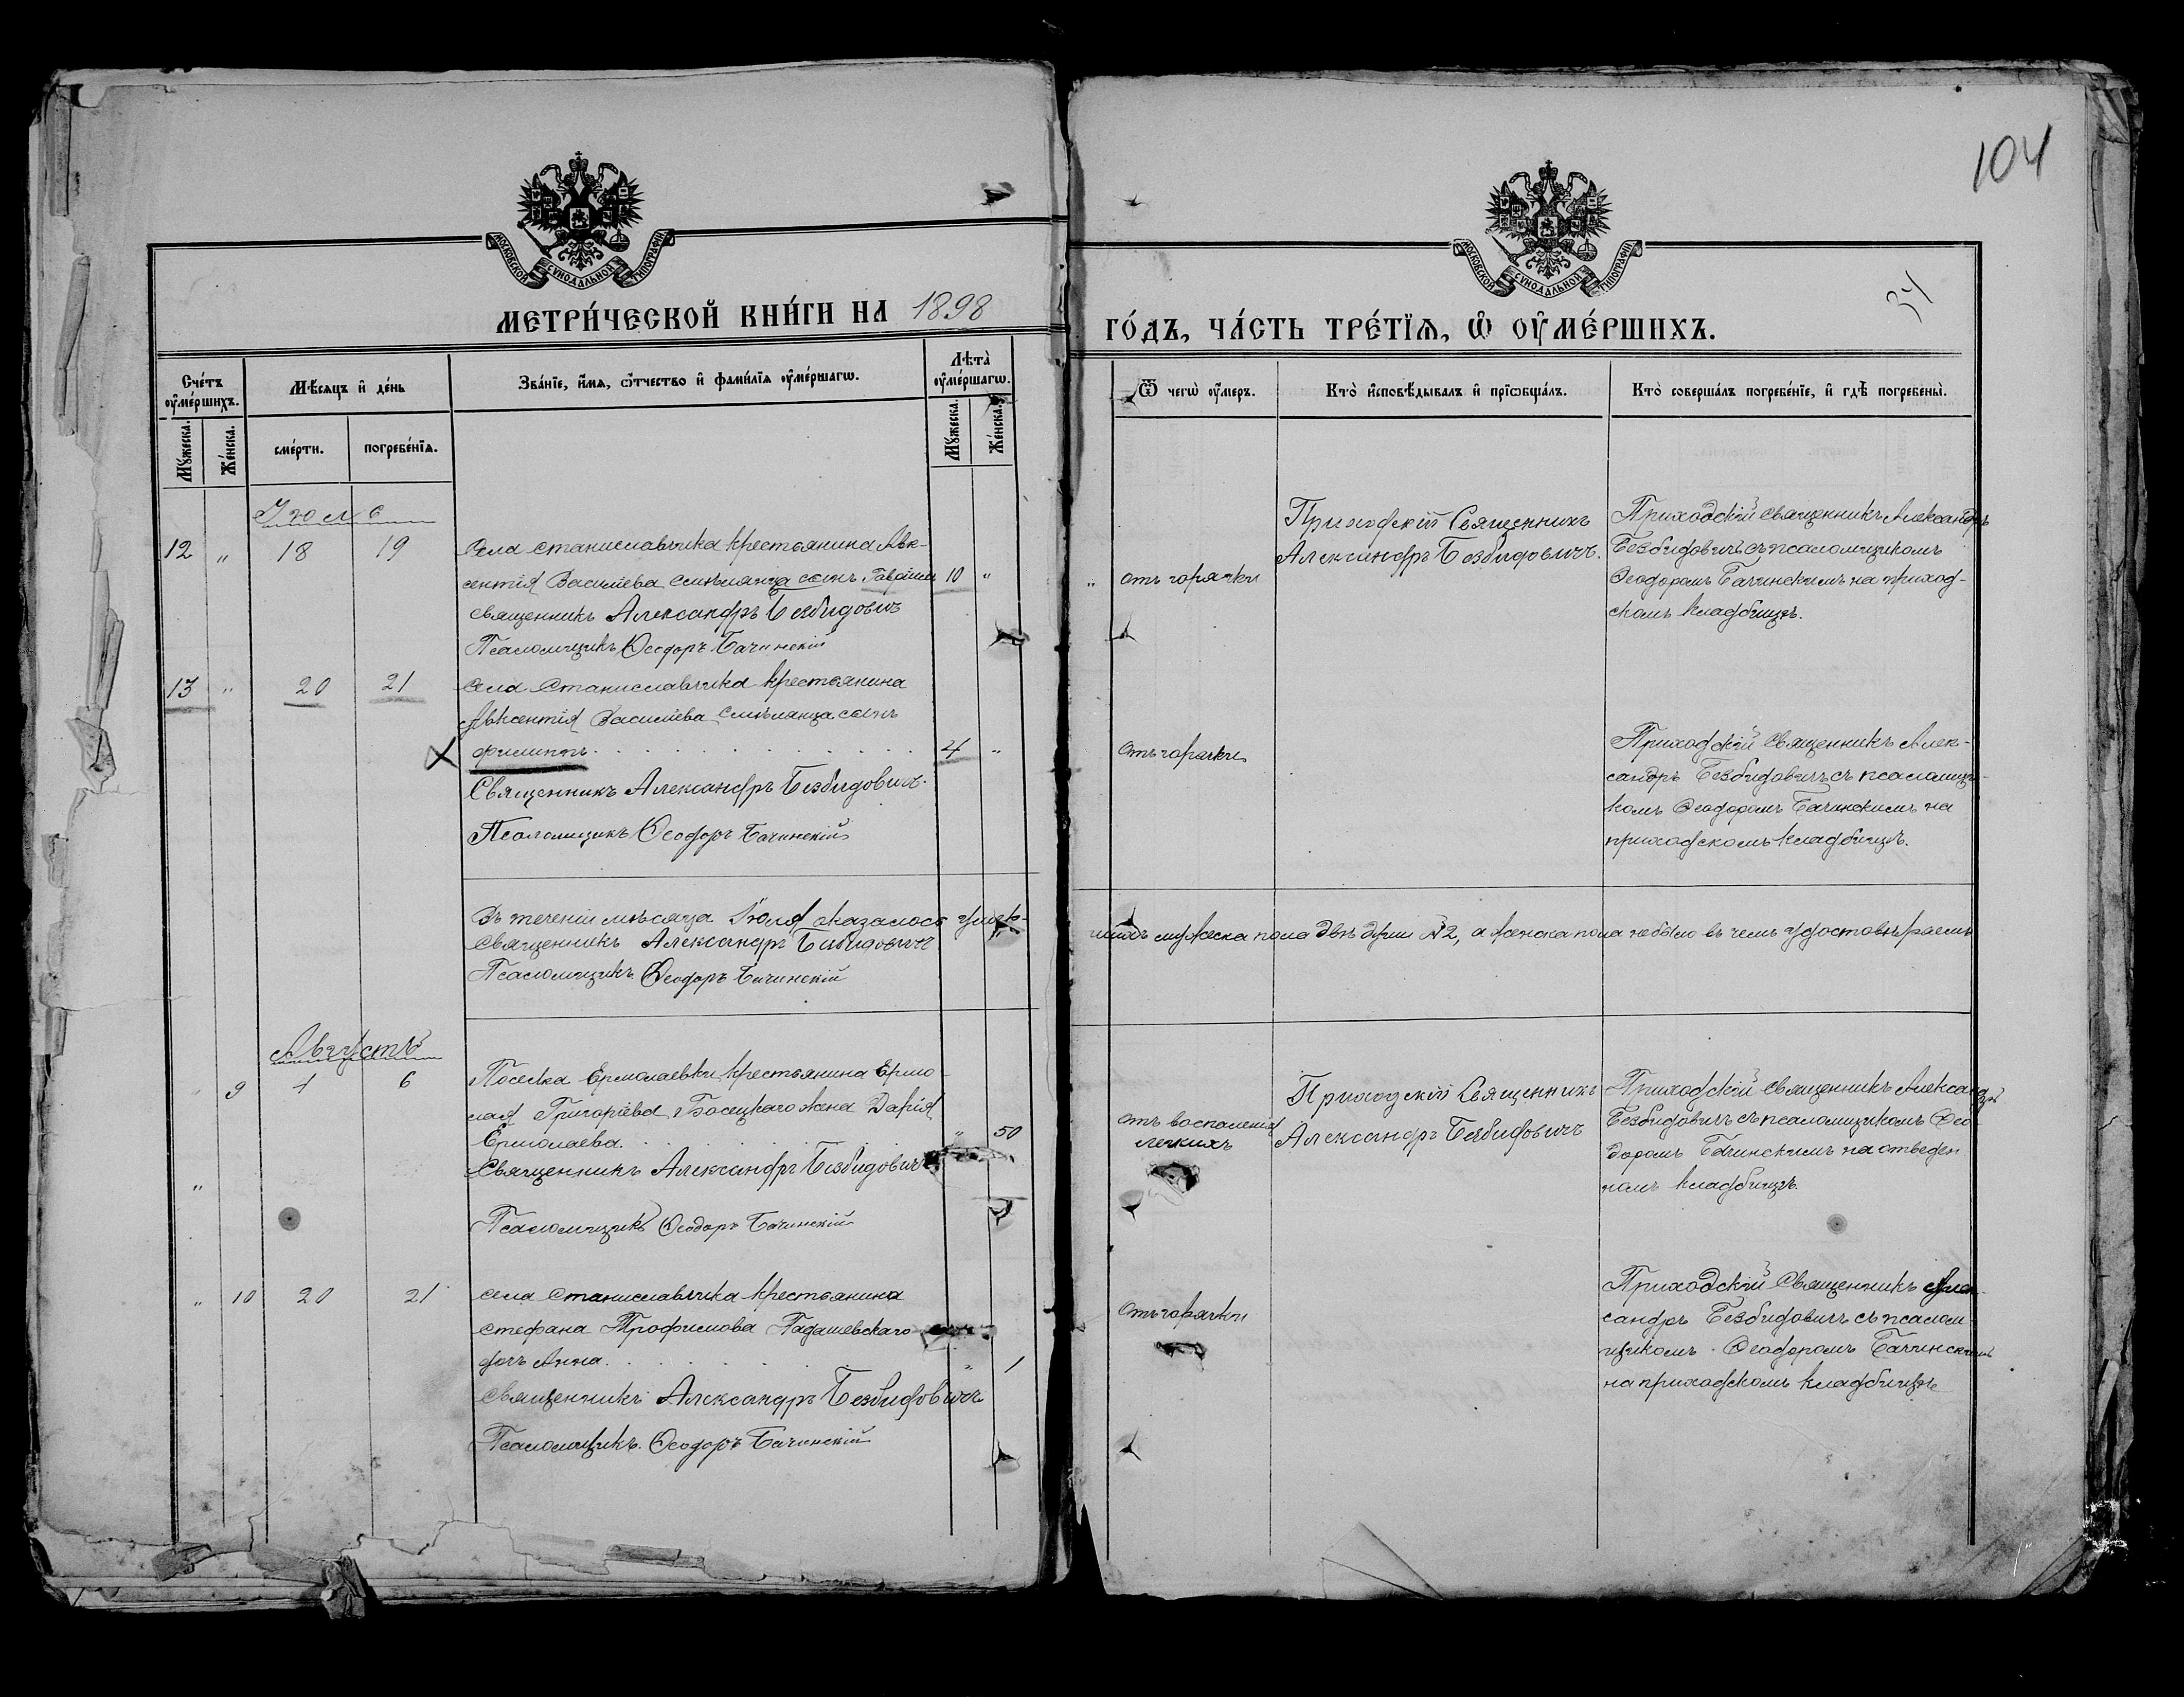 104
34
МОСКОВСКОЙ СУНОДАЛЬНОЙ ТИПОГРАФІИ
МОСКОВСКОЙ СУНОДАЛЬНОЙ ТИПОГРАФІИ
МЕТРИ́ЧЕСКОЙ КНИ́ГИ НА 1898
ГО́ДЪ, ЧА́СТЬ ТРЕ́ТЇѦ, Ѡ҆ ОУ҆МЕ́РШИХЪ.
Сче́тъ оу҆ме́ршихъ.
Мꙋ́жеска.
Же́нска.
Мѣ́сяцъ и҆ де́нь
сме́рти.
погребе́нїѧ.
Зва́нїе, и҆́мѧ, ѻ҆́тчество и҆ фами́лїѧ оу҆ме́ршагѡ.
Лѣта̀ оу҆ме́ршагѡ.
Мꙋ́жеска.
Же́нска.
Ѿ чегѡ̀ оу҆́меръ.
Кто̀ и҆сповѣ́дывалъ и҆ прїѡбща́лъ.
Кто̀ соверша́лъ погребе́нїе, и҆ гдѣ̀ погребены̀.
Іюль
12 " 18 19
Села Станиславчика крестьянина Авк-
сентія Василіева Смѣлянца сынъ Гавріилъ 10 "
Священникъ Александръ Безбидовичъ
Псаломщикъ Ѳеодоръ Бачинскій
" отъ горячки
Приходскій Священникъ
Александръ Безбидовичъ.
Приходскій священникъ Александръ
Безбидовичъ съ псаломщикомъ
Ѳеодоромъ Бачинскимъ на приход-
скомъ кладбищѣ.
13 " 20 21
Села Станиславчика крестьянина
Авксентія Василіева Смѣлянца сынъ
Филиппъ. 4 "
Священникъ Александръ Безбидовичъ.
Псаломщикъ Ѳеодоръ Бачинскій
Отъ горячки
Приходскій Священникъ Алек-
сандръ Безбидовичъ съ псаломщи-
комъ Ѳеодоромъ Бачинскимъ на
приходскомъ кладбищѣ.
Въ теченіи мѣсяца Іюля оказалось умер-
шихъ мужеска пола двѣ души №2, а женска пола не было въ чемъ удостовѣряемъ
Священникъ Александръ Безбидовичъ
Псаломщикъ Ѳеодоръ Бачинскій
Августъ
" 9 4 6
Поселка Ермолаевки крестьянина Ермо-
лая Григоріева Босецкаго жена Дарія
Ермолаева. " 50
Священникъ Александръ Безбидовичъ
Псаломщикъ Ѳеодоръ Бачинскій
отъ воспаленія
легкихъ
Приходскій Священникъ
Александръ Безбидовичъ
Приходскій священникъ Александръ
Безбидовичъ съ псаломщикомъ Ѳео-
доромъ Бачинскимъ на отведен
номъ кладбищѣ.
" 10 20 21
села Станиславчика крестьянина
Стефана Трофимова Гадашевскаго
дочь Анна. " 1
Священникъ Александръ Безбидовичъ
Псаломщикъ Ѳеодоръ Бачинскій
Отъ горячки
Приходскій Священникъ Алек-
сандръ Безбидовичъ съ псалом
щикомъ Ѳеодоромъ Бачинскимъ
на приходскомъ кладбищѣ